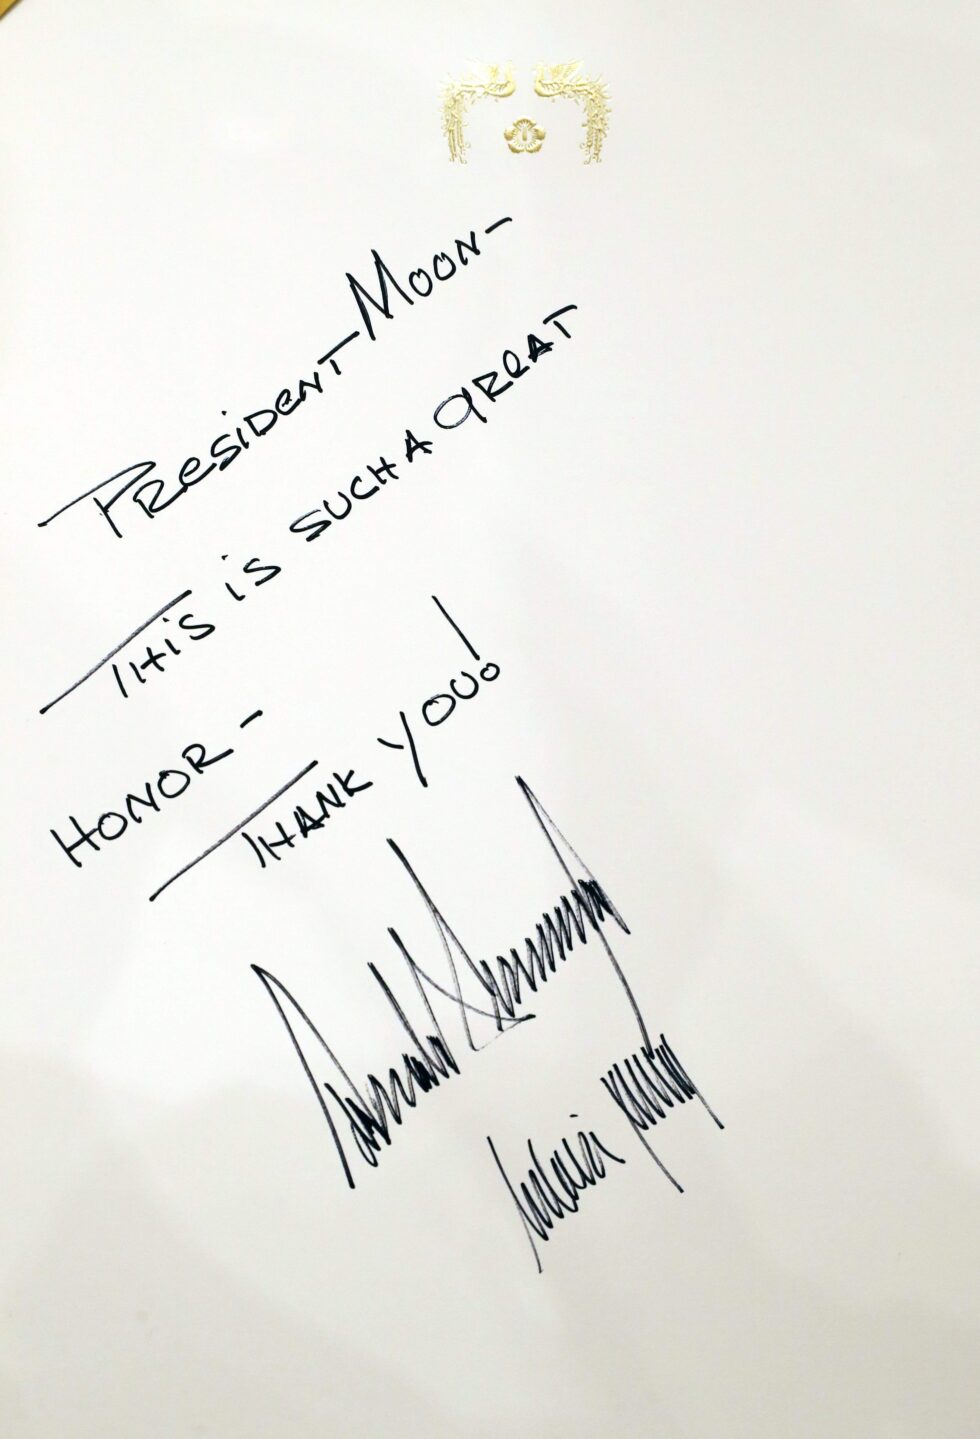 PResiDeNT MOON-
THiS iS SUCH A GReAT
HONOR-
THANK YOU!